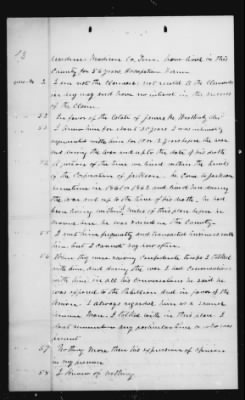 13
residence Madison Co, Tenn. have lived in this
County for 56 years, Occupation Farmer
2 I am not the Claimant, not related to the Claimant
in any way and have no interest in the success
of the Claim
52 In favor of the Estate of James
53 I knew him for about 30 years I was intimately
acquainted with him for 10 or 12 years before the war
and during the war and up to the date of his death
54 A portion of the time we lived within the limits
of the Corporation of Jackson. he came to Jackson
sometime in 1861 or 1862 and lived here during
the war and up to the time of his death, he had
been living miles of this place before he
moved here he was raised in the County
55 I met him frequently and transacted business with
him but I cannot say how often.
56 When they were raising Confederate troops I talked
with him and during the war I had conversations
with him in all his conversations he said he
was opposed to the Rebellion and in favor of the
Union. I always regarded him as a
Union Man. I talked with in this place I
dont remember any particular time or who was
present
57 Nothing more than his expressions of opinion
in my presence
58 I know of nothing